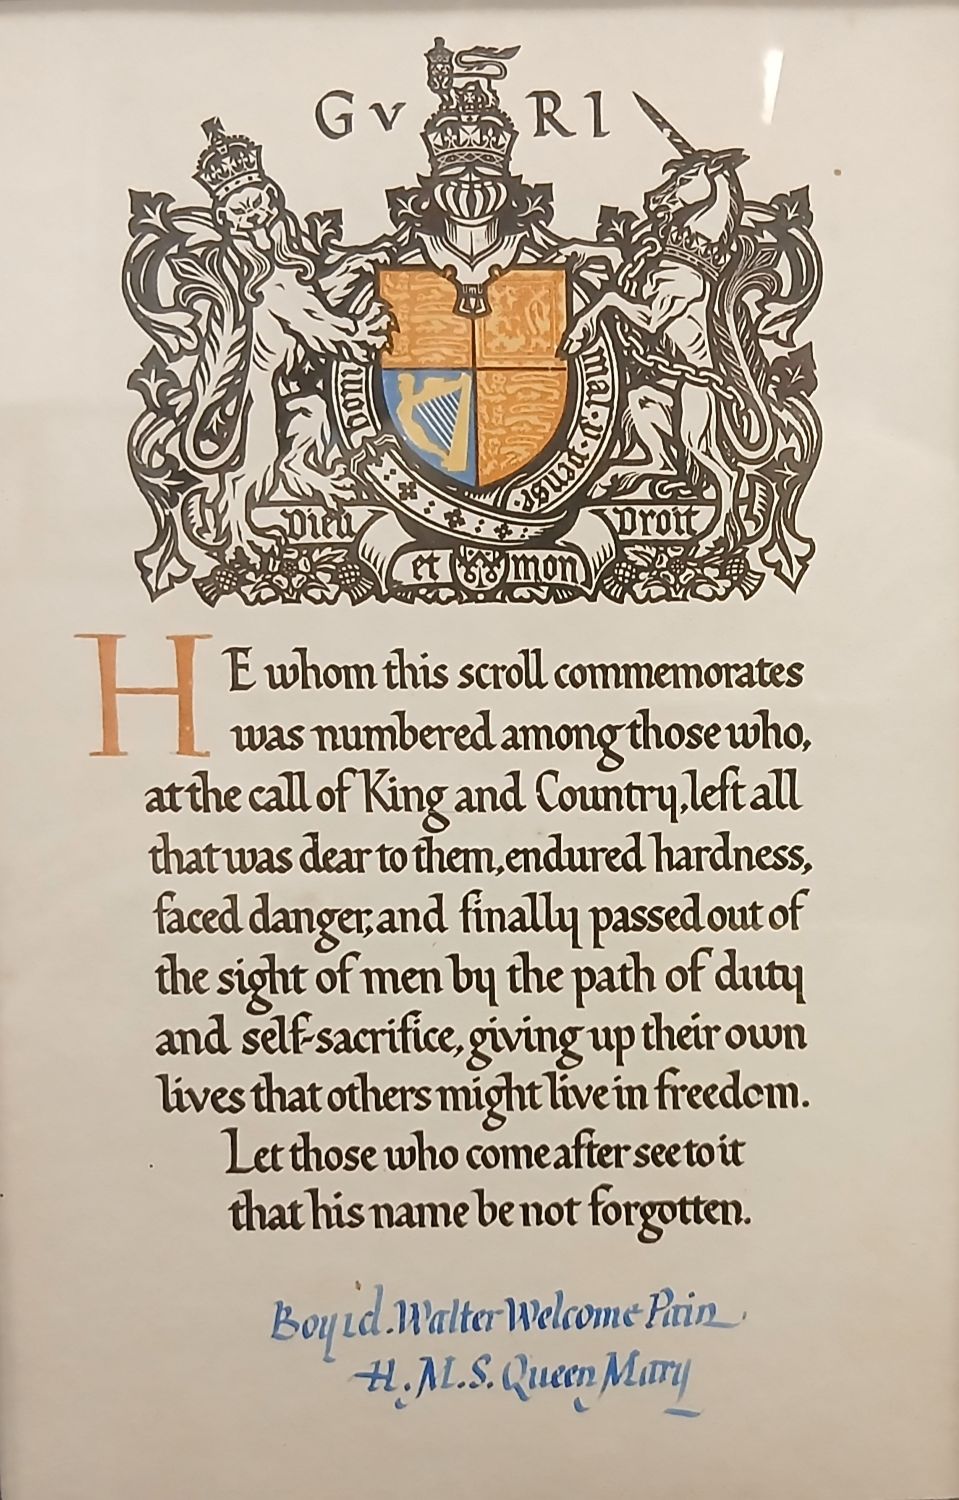 GV RI
Honi
mal·y·pense·
Dieu
Droit
et mon
HE whom this scroll commemorates
was numbered among those who,
at the call of King and Country, left all
that was dear to them, endured hardness,
faced danger, and finally passed out of
the sight of men by the path of duty
and self-sacrifice, giving up their own
lives that others might live in freedom.
Let those who come after see to it
that his name be not forgotten.
Boy 1d. Walter Welcome Pain
H.M.S. Queen Mary